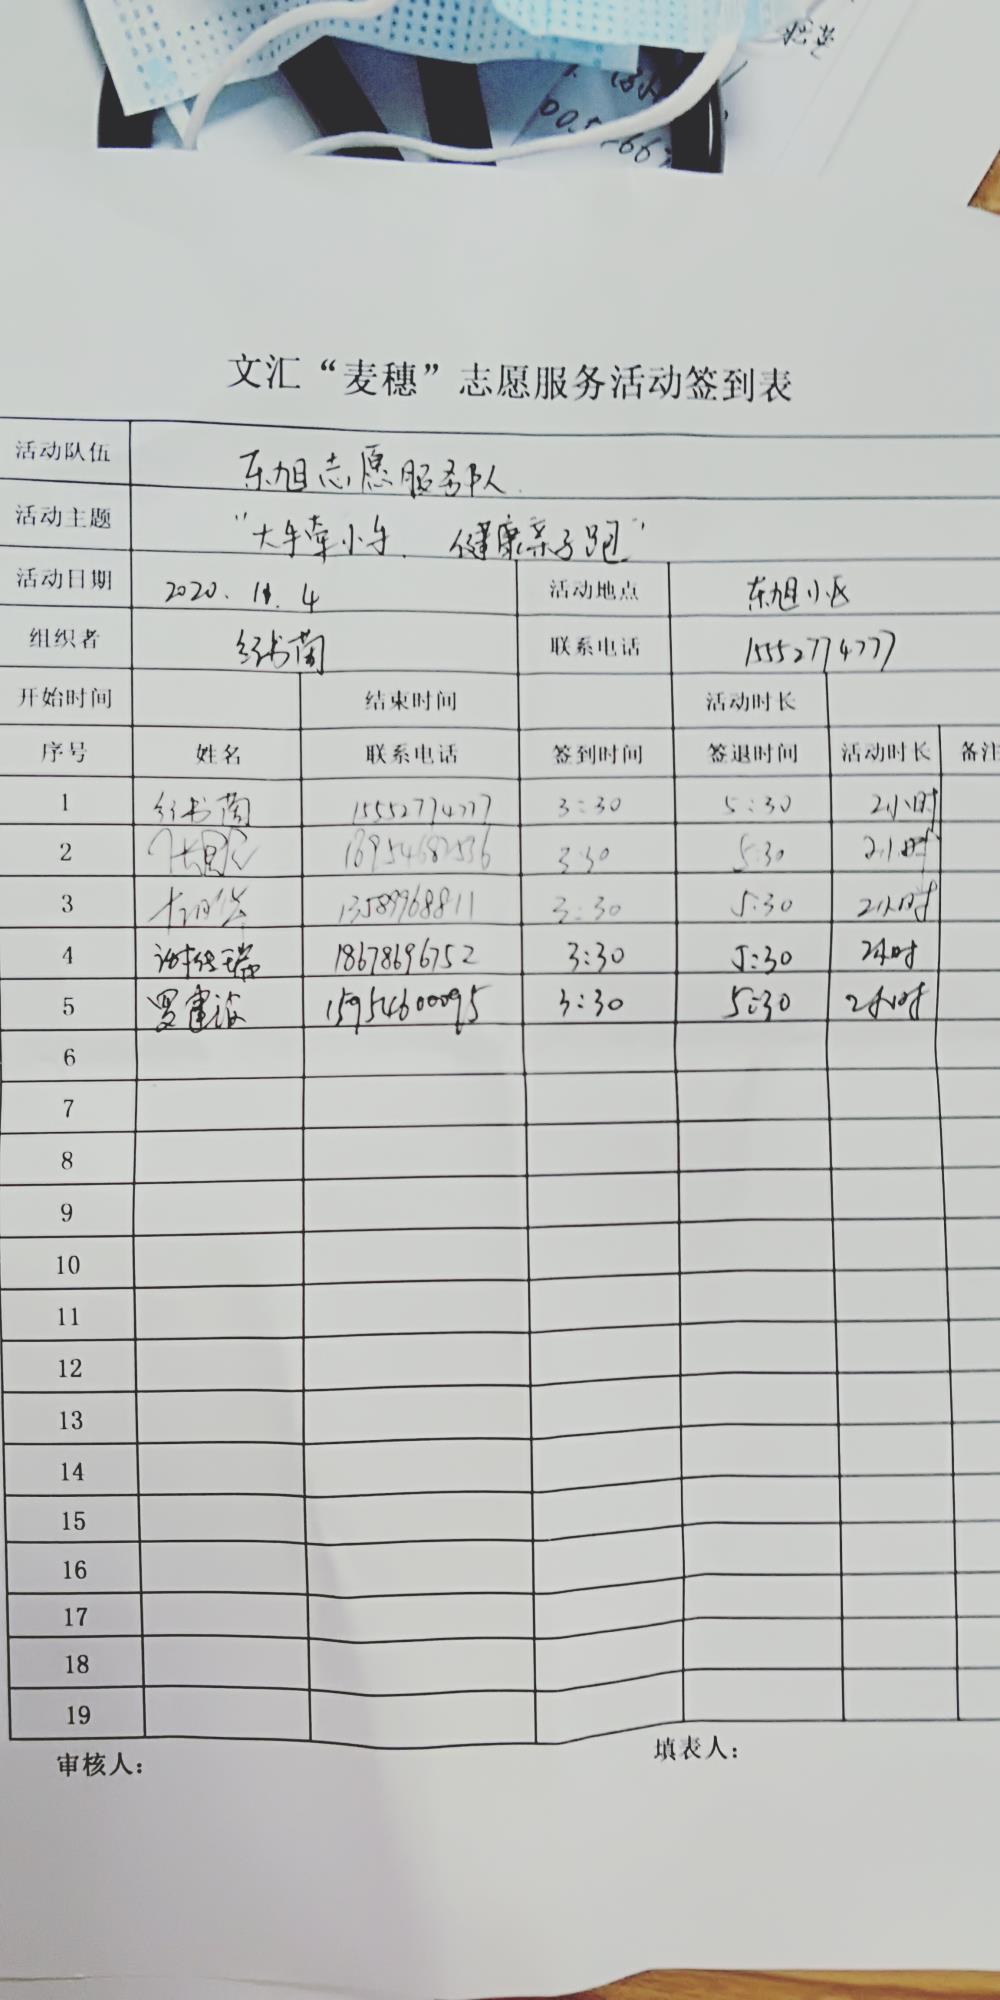 文汇“麦穗”志愿服务活动签到表
活动队伍 东旭志愿服务队
活动主题 “大手牵小手、健康亲子跑”
活动日期 2020.11.4 活动地点 东旭小区
组织者 联系电话 15552774777
开始时间 结束时间 活动时长
序号 姓名 联系电话 签到时间 签退时间 活动时长 备注
1 15552774777 3:30 5:30 2小时
2 18954682536 3:30 5:30 2小时
3 13589968811 3:30 5:30 2小时
4 18678696752 3:30 5:30 2小时
5 15954600095 3:30 5:30 2小时
6
7
8
9
10
11
12
13
14
15
16
17
18
19
审核人： 填表人：